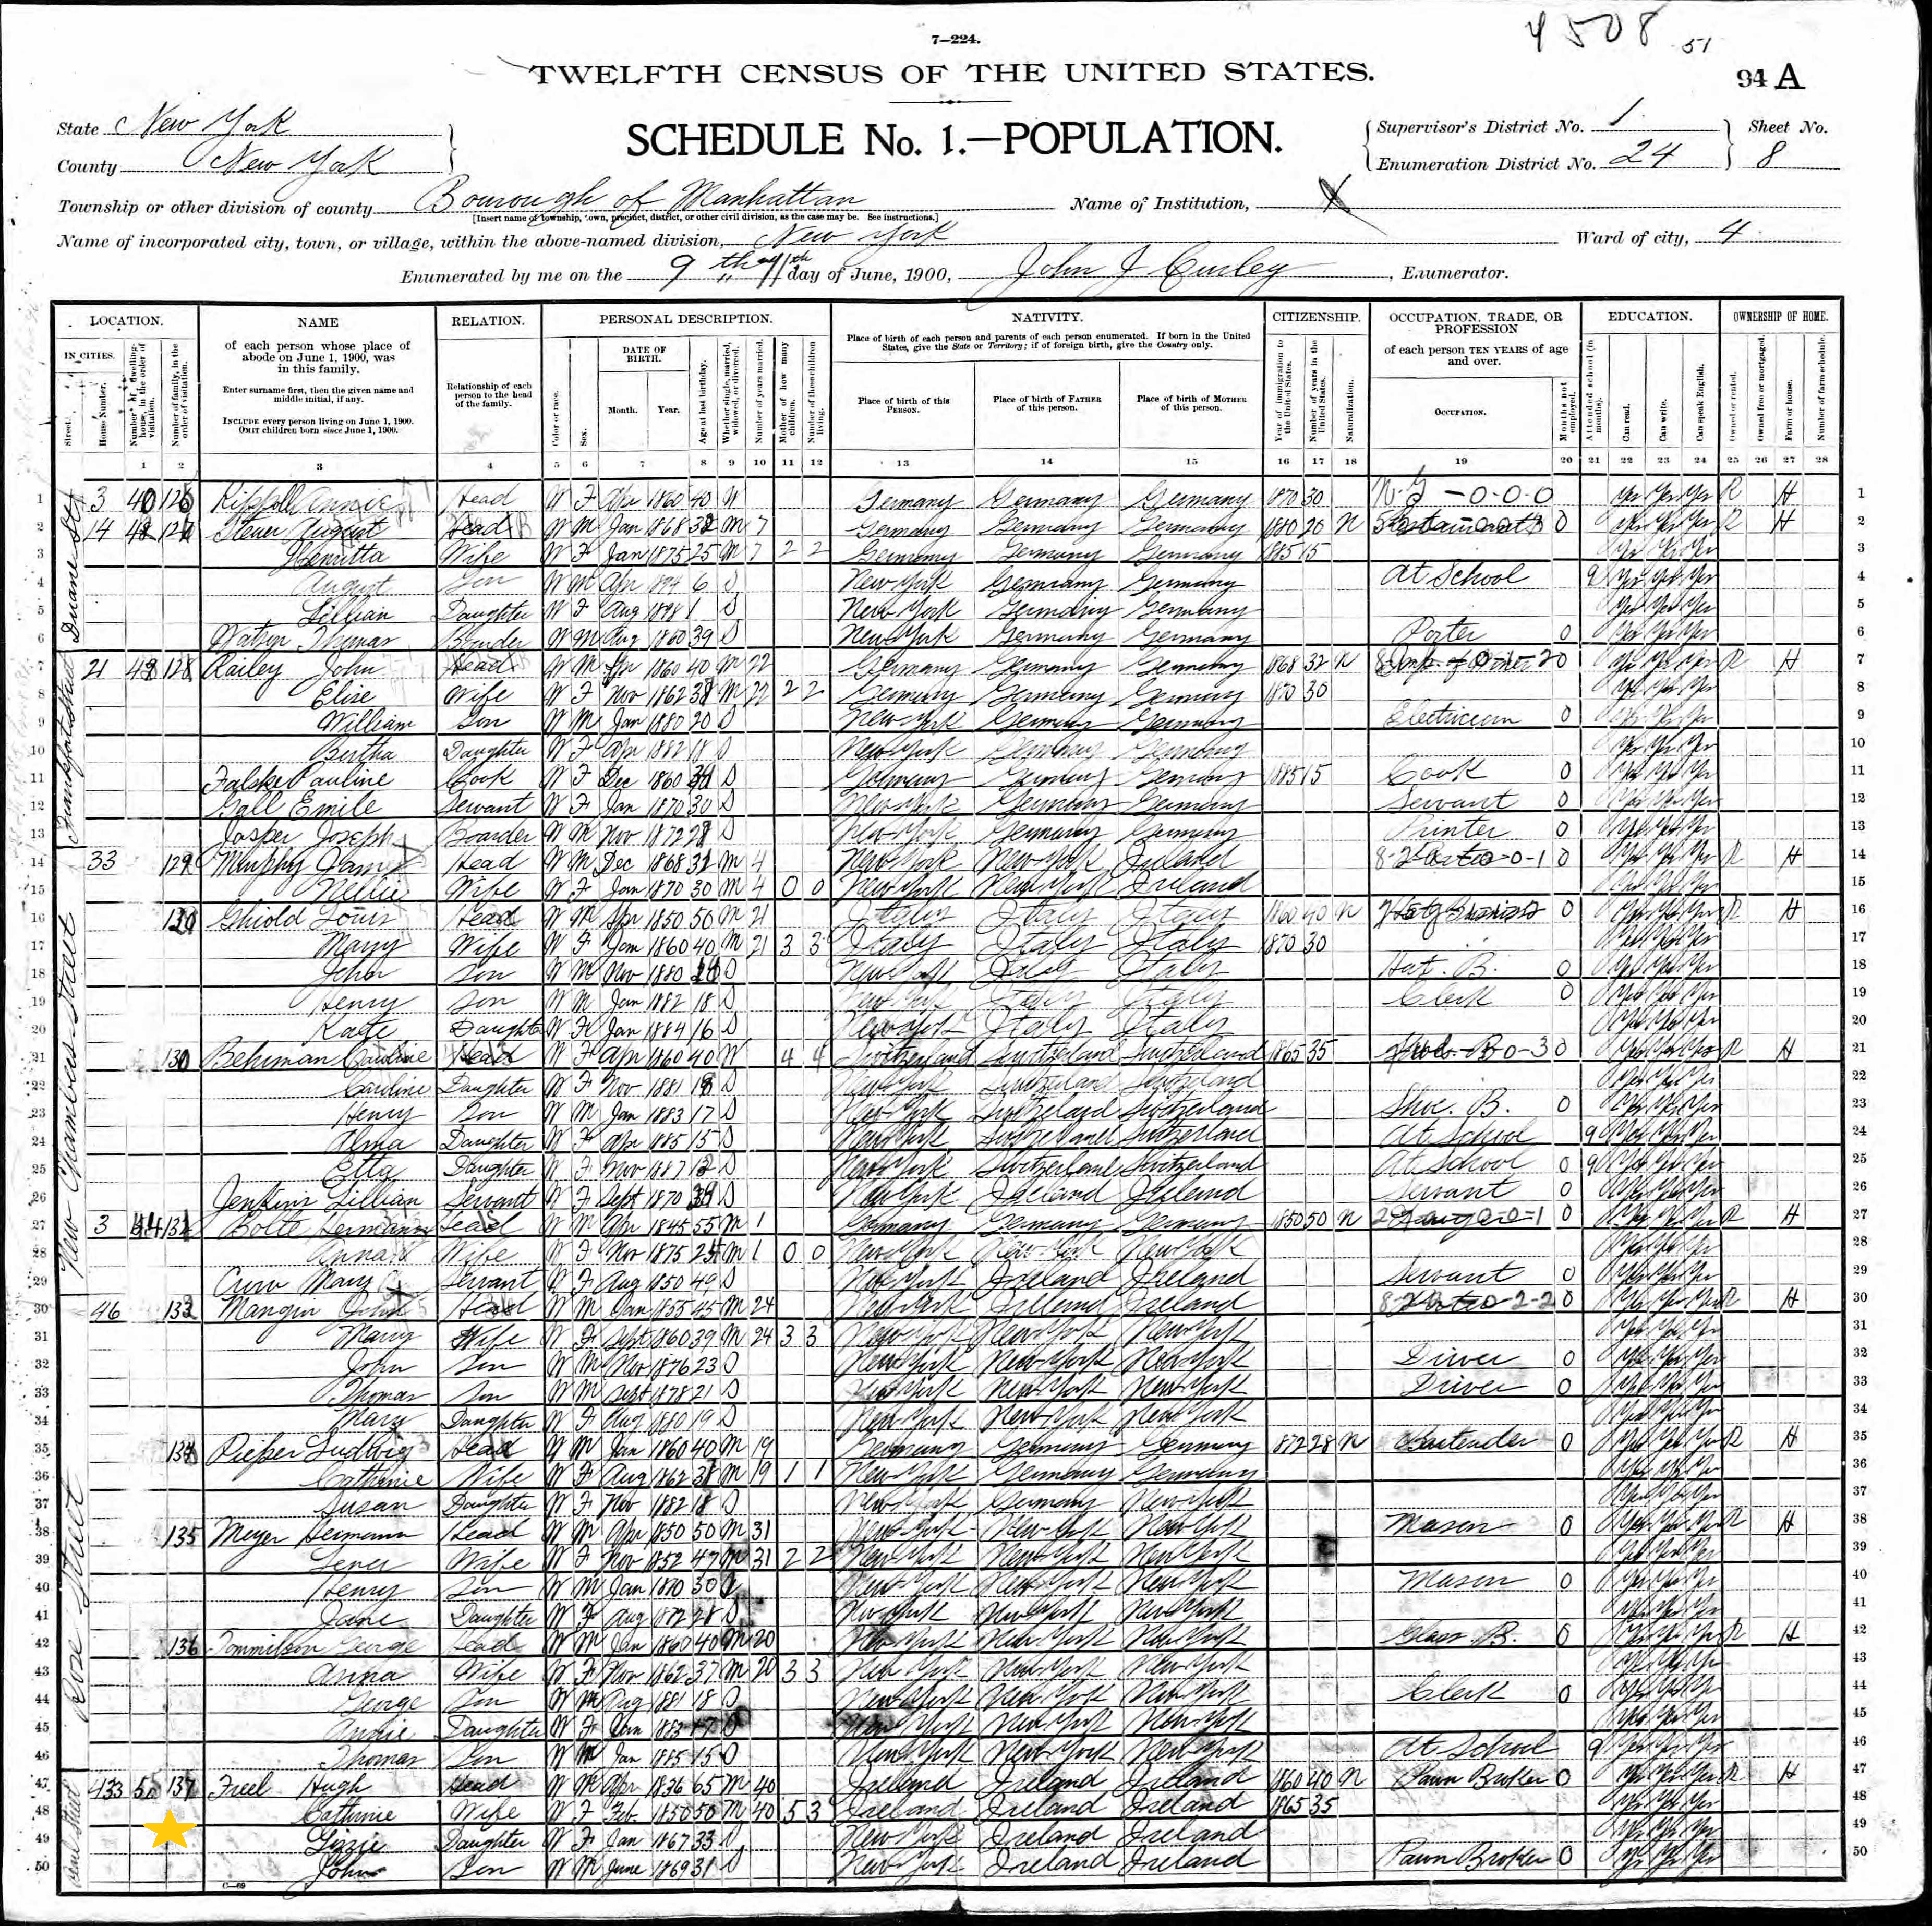 4508 51
7—224.
TWELFTH CENSUS OF THE UNITED STATES.
94 A
State New York
SCHEDULE No. 1.—POPULATION.
Supervisor's District No. 1
Sheet No.
County New York
Enumeration District No. 24
8
Township or other division of county Borough of Manhattan
Name of Institution, X
[Insert name of township, town, precinct, district, or other civil division, as the case may be. See instructions.]
Name of incorporated city, town, or village, within the above-named division, New York
Ward of city, 4
Enumerated by me on the 9th 11th day of June, 1900, John J Curley, Enumerator.
LOCATION.
NAME
RELATION.
PERSONAL DESCRIPTION.
NATIVITY.
CITIZENSHIP.
OCCUPATION, TRADE, OR PROFESSION
EDUCATION.
OWNERSHIP OF HOME.
IN CITIES.
Street.
House Number.
Number of dwelling-house, in the order of visitation.
Number of family, in the order of visitation.
of each person whose place of abode on June 1, 1900, was in this family.
Enter surname first, then the given name and middle initial, if any.
INCLUDE every person living on June 1, 1900.
OMIT children born since June 1, 1900.
Relationship of each person to the head of the family.
Color or race.
Sex.
DATE OF BIRTH.
Month.
Year.
Age at last birthday.
Whether single, married, widowed, or divorced.
Number of years married.
Mother of how many children.
Number of these children living.
Place of birth of each person and parents of each person enumerated. If born in the United States, give the State or Territory; if of foreign birth, give the Country only.
Place of birth of this PERSON.
Place of birth of FATHER of this person.
Place of birth of MOTHER of this person.
Year of immigration to the United States.
Number of years in the United States.
Naturalization.
of each person TEN YEARS of age and over.
OCCUPATION.
Months not employed.
Attended school (in months).
Can read.
Can write.
Can speak English.
Owned or rented.
Owned free or mortgaged.
Farm or house.
Number of farm schedule.
1 2 3 4 5 6 7 8 9 10 11 12 13 14 15 16 17 18 19 20 21 22 23 24 25 26 27 28
Duane St
Frankfort Street
New Chambers Street
Rose Street
Pearl Street
1 3 Annie Head W F Apr 1860 40 Germany Germany Germany 1870 30 Yes Yes Yes R H 1
2 14 Steuer August Head W M Jan 1868 M 7 Germany Germany Germany 1880 20 N 0 Yes Yes Yes R H 2
3 Henrietta Wife W F Jan 1875 25 M 7 2 2 Germany Germany Germany 1885 15 Yes Yes Yes 3
4 August Son W M Apr 1894 6 S New York Germany Germany At School 9 Yes Yes Yes 4
5 Lillian Daughter W F Aug 1898 1 S New York Germany Germany Yes Yes Yes 5
6 Thomas W M Aug 1860 39 S New York Germany Germany Porter 0 Yes Yes Yes 6
7 21 128 Railey John Head W M Apr 1860 40 M 22 Germany Germany Germany 1868 32 N Yes Yes Yes R H 7
8 Elise Wife W F Nov 1862 M 22 2 2 Germany Germany Germany 1870 30 Yes Yes Yes 8
9 William Son W M Jan 1880 20 S New York Germany Germany Electrician 0 Yes Yes Yes 9
10 Bertha Daughter W F Apr 1882 18 S New York Germany Germany Yes Yes Yes 10
11 Pauline Cook W F Dec 1860 S Germany Germany Germany 1885 15 Cook 0 Yes Yes Yes 11
12 Gall Emile Servant W F Jan 1870 30 S New York Germany Germany Servant 0 Yes Yes Yes 12
13 Jasper Joseph Boarder W M Nov 1872 S New York Germany Germany Printer 0 Yes Yes Yes 13
14 33 129 Murphy James Head W M Dec 1868 M 4 New York New York Ireland 0 Yes Yes Yes R H 14
15 Nellie Wife W F Jan 1870 30 M 4 0 0 New York New York Ireland Yes Yes Yes 15
16 Ghiold Louis Head W M Apr 1850 50 M 21 Italy Italy Italy 1860 40 N 0 Yes Yes Yes R H 16
17 Mary Wife W F Jan 1860 40 M 21 3 3 Italy Italy Italy 1870 30 Yes Yes Yes 17
18 John Son W M Nov 1880 S New York Italy Italy Hat. B. 0 Yes Yes Yes 18
19 Henry Son W M Jan 1882 18 S New York Italy Italy Clerk 0 Yes Yes Yes 19
20 Kate Daughter W F Jan 1884 16 S New York Italy Italy Yes Yes Yes 20
21 130 Behrman Caroline Head W F Apr 1860 40 W 4 4 Switzerland Switzerland Switzerland 1865 35 0 Yes Yes Yes R H 21
22 Caroline Daughter W F Nov 1881 18 S New York Switzerland Switzerland Yes Yes Yes 22
23 Henry Son W M Jan 1883 17 S New York Switzerland Switzerland Shoe. B. 0 Yes Yes Yes 23
24 Alma Daughter W F Apr 1885 15 S New York Switzerland Switzerland At School 9 Yes Yes Yes 24
25 Etta Daughter W F Nov 1887 12 S New York Switzerland Switzerland At School 0 9 Yes Yes Yes 25
26 Jenkins Lillian Servant W F Sept 1870 S New York Ireland Ireland Servant 0 Yes Yes Yes 26
27 3 Bolte Hermann Head W M Apr 1845 55 M 1 Germany Germany Germany 1850 50 N 0 Yes Yes Yes R H 27
28 Anna Wife W F Nov 1875 M 1 0 0 New York New York New York Yes Yes Yes 28
29 Crow Mary Servant W F Aug 1850 49 S New York Ireland Ireland Servant 0 Yes Yes Yes 29
30 46 133 Mangin John Head W M Jan 1855 45 M 24 New York Ireland Ireland 0 Yes Yes Yes R H 30
31 Mary Wife W F Sept 1860 39 M 24 3 3 New York New York New York Yes Yes Yes 31
32 John Son W M Nov 1876 23 S New York New York New York Driver 0 Yes Yes Yes 32
33 Thomas Son W M Sept 1878 21 S New York New York New York Driver 0 Yes Yes Yes 33
34 Mary Daughter W F Aug 1880 19 S New York New York New York Yes Yes Yes 34
35 134 Pieper Ludwig Head W M Jan 1860 40 M 19 Germany Germany Germany 1872 28 N Bartender 0 Yes Yes Yes R H 35
36 Catherine Wife W F Aug 1862 M 19 1 1 New York Germany Germany Yes Yes Yes 36
37 Susan Daughter W F Nov 1882 18 S New York Germany New York Yes Yes Yes 37
38 135 Meyer Hermann Head W M Apr 1850 50 M 31 New York New York New York Mason 0 Yes Yes Yes R H 38
39 Wife W F Nov 1852 47 M 31 2 2 New York New York New York Yes Yes Yes 39
40 Henry Son W M Jan 1870 30 S New York New York New York Mason 0 Yes Yes Yes 40
41 Jane Daughter W F Aug 1872 28 S New York New York New York Yes Yes Yes 41
42 136 Tommilson George Head W M Jan 1860 40 M 20 New York New York New York Glass. B. 0 Yes Yes Yes R H 42
43 Anna Wife W F Nov 1862 37 M 20 3 3 New York New York New York Yes Yes Yes 43
44 George Son W M Aug 1881 18 S New York New York New York Clerk 0 Yes Yes Yes 44
45 Annie Daughter W F Jan 1883 17 S New York New York New York Yes Yes Yes 45
46 Thomas Son W M Jan 1885 15 S New York New York New York At School 9 Yes Yes Yes 46
47 433 137 Freel Hugh Head W M Apr 1836 65 M 40 Ireland Ireland Ireland 1860 40 N Pawn Broker 0 Yes Yes Yes R H 47
48 Catherine Wife W F Feb. 1850 50 M 40 5 3 Ireland Ireland Ireland 1865 35 Yes Yes Yes 48
49 Lizzie Daughter W F Jan 1867 33 S New York Ireland Ireland Yes Yes Yes 49
50 John Son W M June 1869 31 S New York Ireland Ireland Pawn Broker 0 Yes Yes Yes 50
C—69